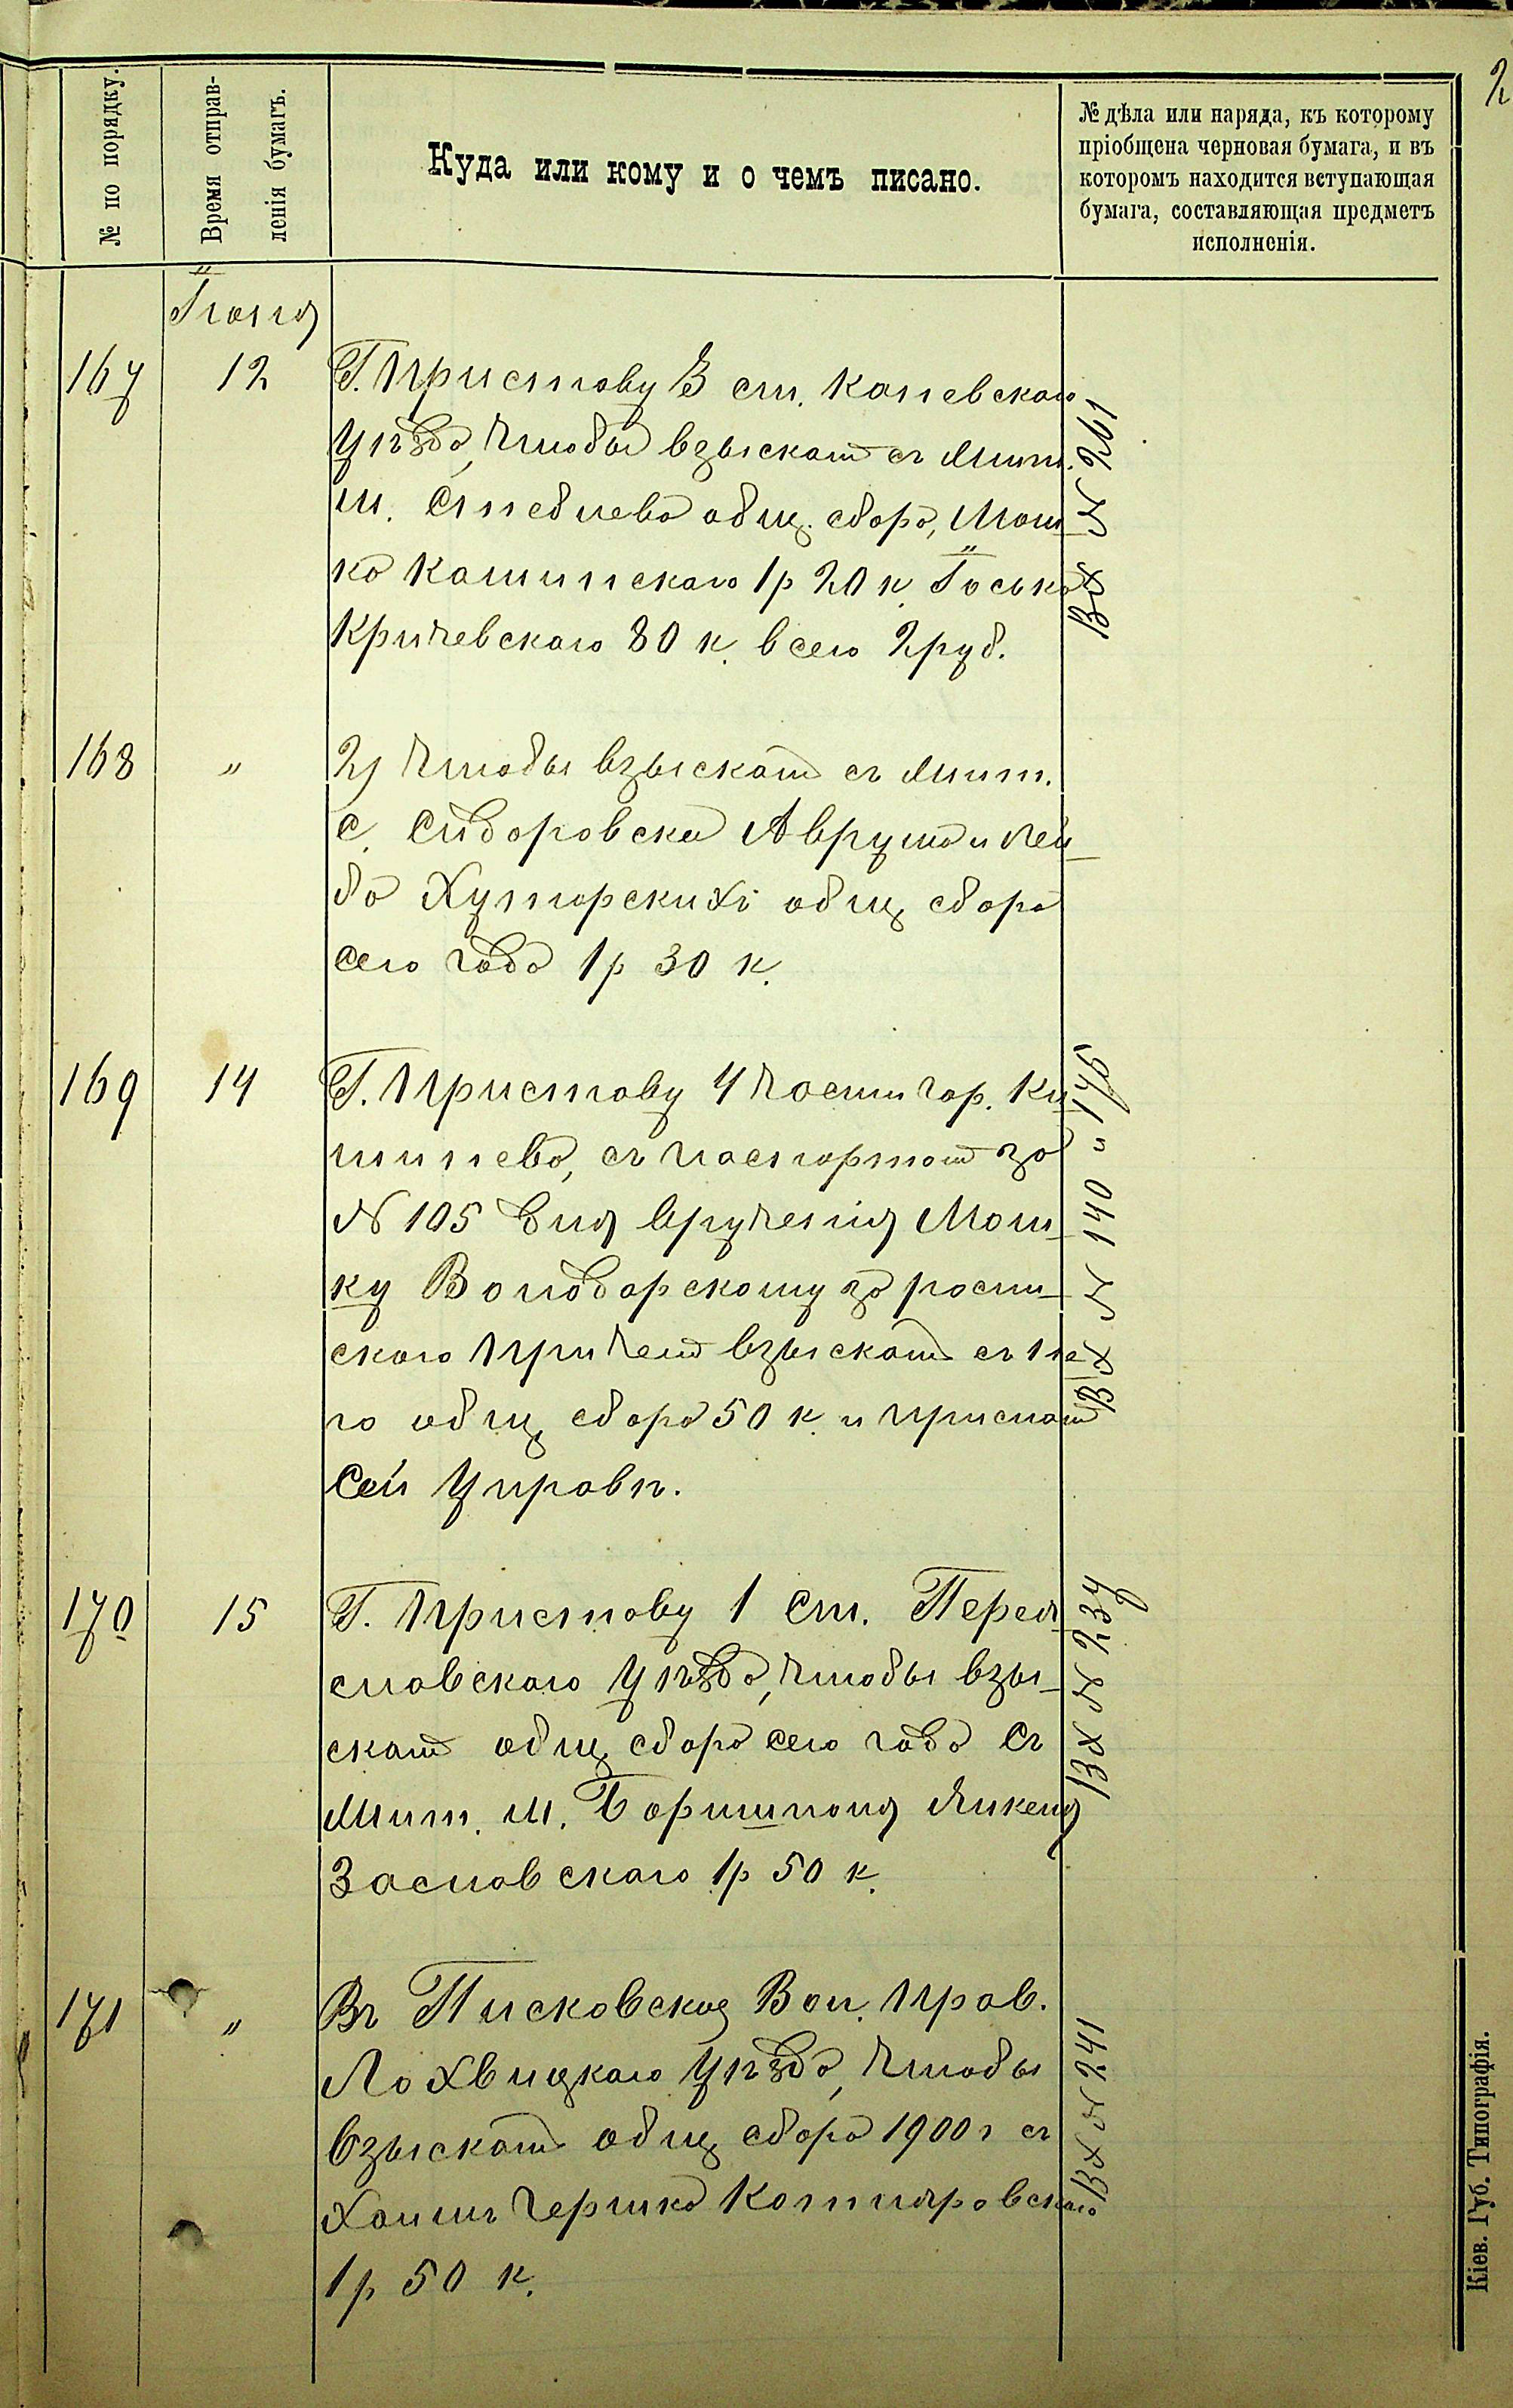 2
№ по порядку.
Время отправ-
ленія бумагъ.
Куда или кому и о чемъ писано.
№ дѣла или наряда, къ которому
пріобщена черновая бумага, и въ
которомъ находится вступающая
бумага, составляющая предметъ
исполненія.
Іюля
167
12
Г. Приставу 3 ст. Каневскаго
Уѣзда, чтобы взыскать съ Мѣщ.
м. Стеблева общ. сбора, Мош-
ка Кашинскаго 1р 20 к. Іоська
Кричевскаго 80 к. всего 2 руб.
Вх № 261
168
"
2) чтобы взыскать съ Мѣщ.
с. Сидоровки Аврума и Лей-
ба Хуторскихъ общ. сбора
сего года 1р 30 к.
169
14
Г. Приставу 4 части гор. Ки-
шинева, съ паспортомъ за
№ 105 для врученія Мош-
ку Володарскому за роспи-
скою причемъ взыскать съ не-
го общ. сбора 50 к. и прислать
сей Управѣ.
Вх № 140 и 175
170
15
Г. Приставу 1 ст. Перея-
славскаго Уѣзда, чтобы взы-
скать общ. сбора сего года съ
Мѣщ. м. Боришполя Янкеля
Заславскаго 1р 50 к.
Вх № 237
171
"
Въ Писковское Вол. Прав.
Лохвицкаго Уѣзда, чтобы
взыскать общ. сбора 1900 г съ
Хаимъ Гершка Котляровскаго
1р 50 к.
Вх № 241
Кіев. Губ. Типографія.